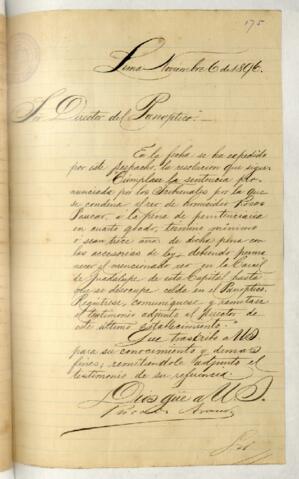 175
Lima, Noviembre 6 de 1896.
Sor. Director del Panoptico.
En la fecha se ha expedido
por este despacho, la resolucion que sigue:
"Cumplase la sentencia pro-
nunciada por los Tribunales por la que
se condena al reo de homicidio Rosas
Paucar, a la pena de penitenciaria
en cuarto grado, termino minimo
o sean trece años de dicha pena con
las accesorias de ley, debiendo perma-
necer el mencionado reo en la Carcel
de Guadalupe de esta Capital hasta
que se desocupe celda en el Panoptico.
Registrese, comuniquese y remitase
el testimonio adjunto al Director de
este ultimo establecimiento."
Que trascribo a US.
para su conocimiento y demas
fines, remitiendole adjunto el
testimonio de su referencia.
Dios gue a US.